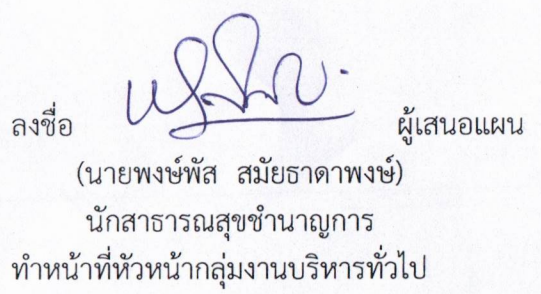 ลงชื่อ ผู้เสนอแผน
(นายพงษ์พัส สมัยธาดาพงษ์)
นักสาธารณสุขชำนาญการ
ทำหน้าที่หัวหน้ากลุ่มงานบริหารทั่วไป